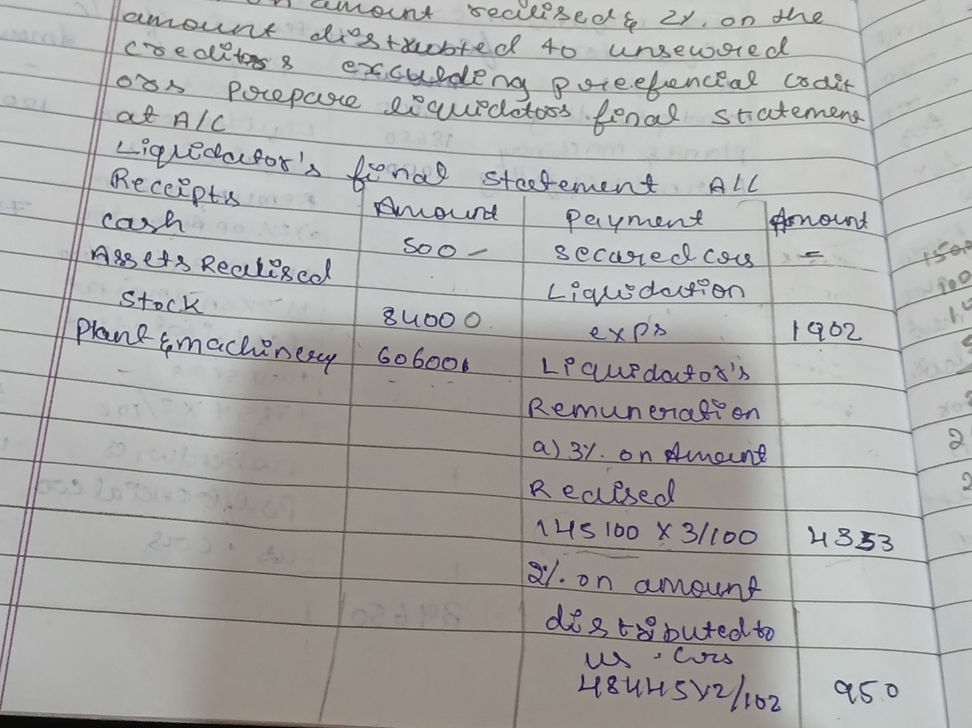 amount realised & 2%. on the
amount distrubted to unsewored
creditors exculding poreefencial codit
ors Porepare liquidators final statement
at A/C
Liquidator's final statement A/C
Receipts Amount Payment Amount
cash 500 - secured cors =
Assets Realised Liquidation
Stock 84000 exps 1902
Plant & machinery 60600 Liquidator's
Remuneration
a) 3%. on Amount
Realised
145100 X 3/100 4353
2%. on amount
distributed to
us. Cors
48445X2/102 950